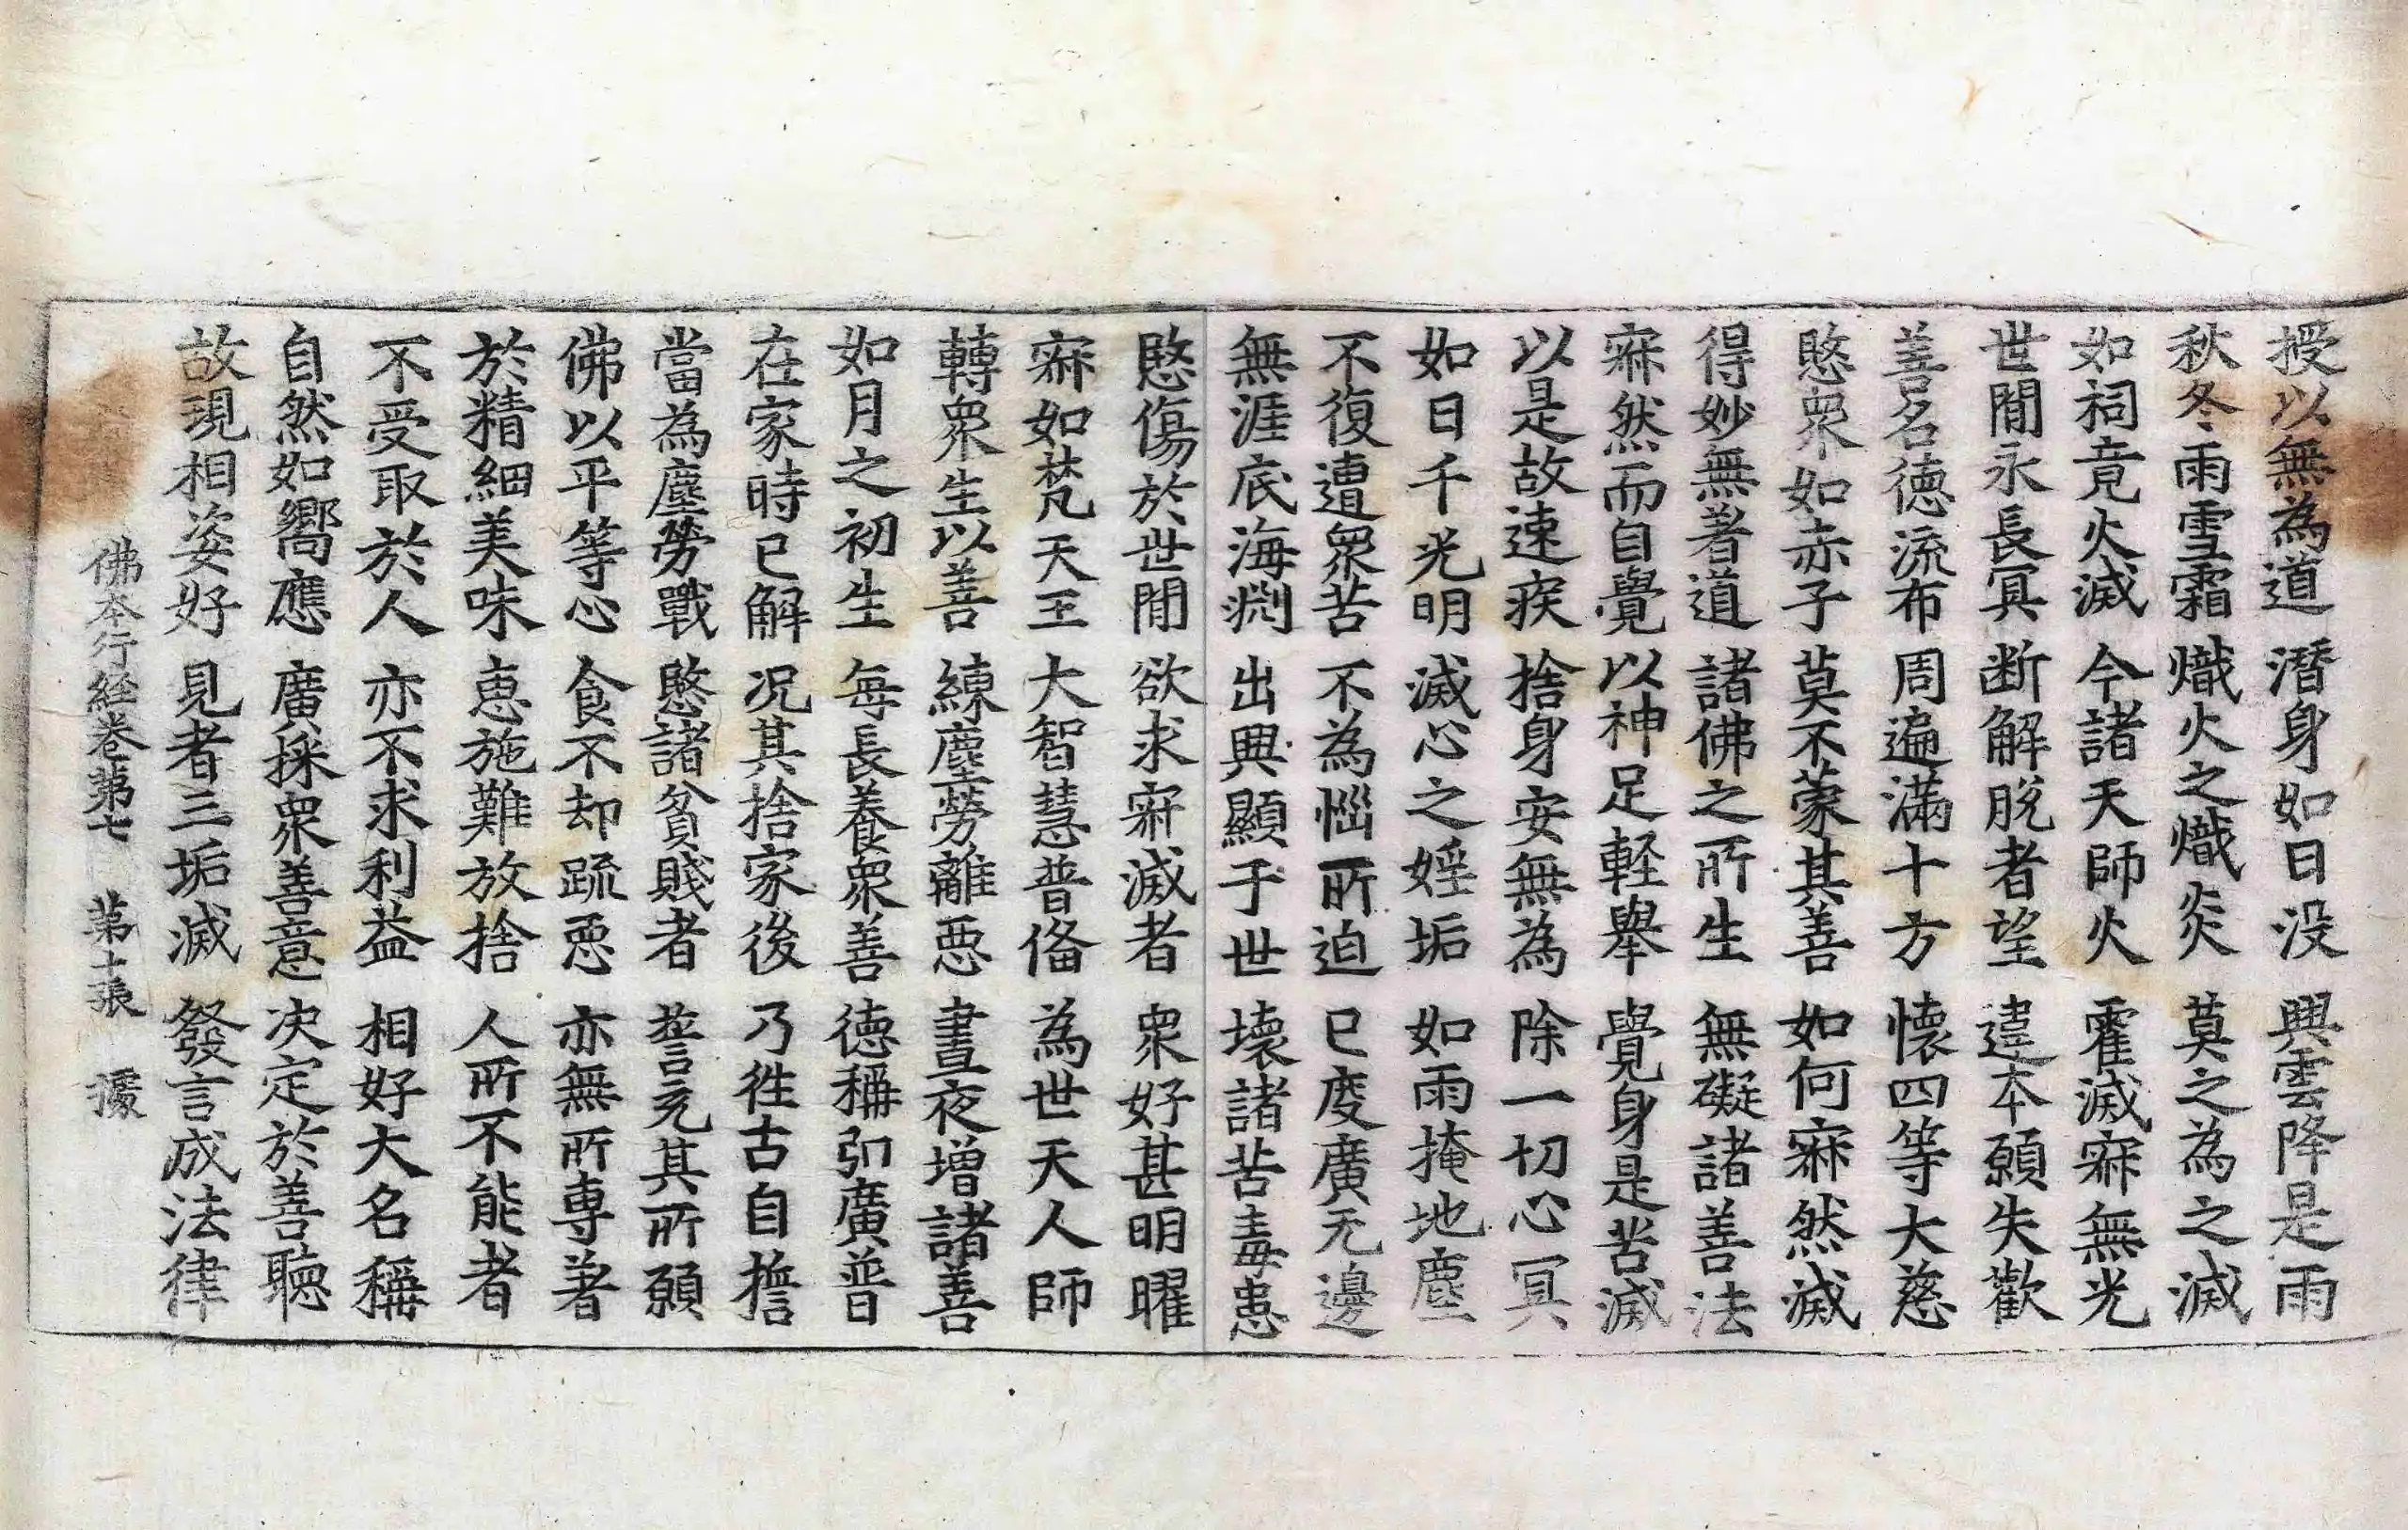 授以無為道 潛身如日没 興雲降是雨
秋冬雨雪霜 熾火之熾炎 莫之為之滅
如祠竟火滅 今諸天師火 霍滅㝥無光
世閒永長冥 断解脫者望 違本願失歡
善名德流布 周遍滿十方 懷四等大慈
愍衆如赤子 莫不蒙其善 如何㝥然滅
得妙無著道 諸佛之所生 無礙諸善法
㝥然而自覺 以神足輕舉 覺身是苦滅
以是故速疾 捨身安無為 除一切心冥
如日千光明 滅心之婬垢 如雨掩地塵
不復遭衆苦 不為惱所迫 已度廣无邊
無涯底海渕 出興顯于世 壞諸苦毒恚
愍傷於世閒 欲求㝥滅者 衆好甚明曜
㝥如梵天王 大智慧普俻 為世天人師
轉衆生以善 練塵勞離惡 晝夜增諸善
如月之初生 每長養衆善 德稱弘廣普
在家時已解 况其捨家後 乃徃古自擔
當為塵勞戰 愍諸貧賤者 誓充其所願
佛以平等心 食不却疏惡 亦無所專著
於精細美味 惠施難放捨 人所不能者
不受取於人 亦不求利益 相好大名稱
自然如嚮應 廣採衆善意 决定於善聽
故現相姿好 見者三垢滅 發言成法律
佛本行経卷第七 第十張 據